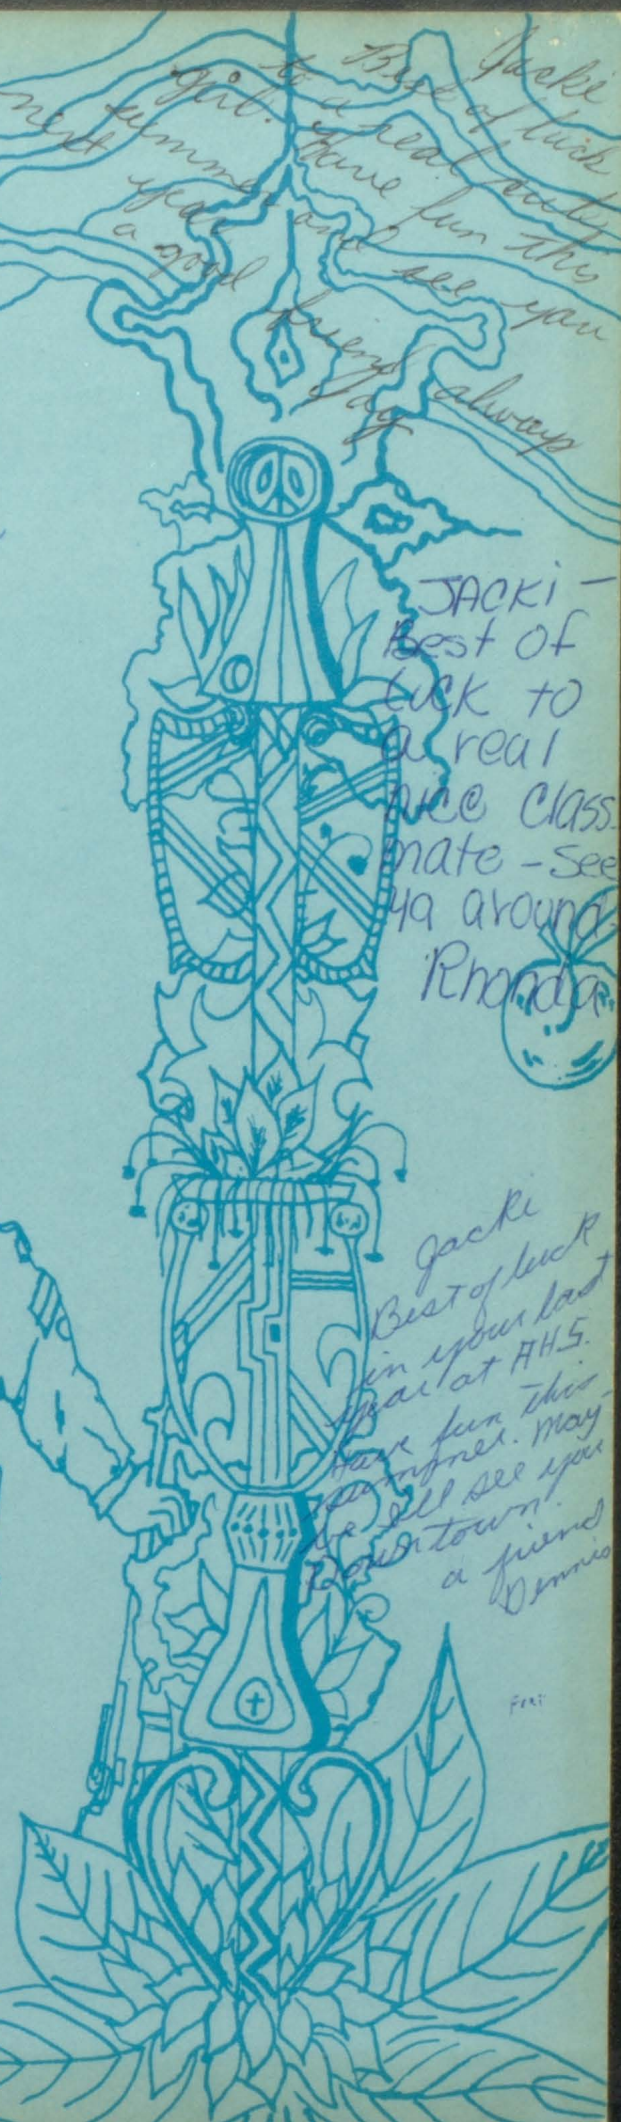 Jacki
Best of luck
to a real cutey
girl. Have fun this
summer and see you
next year
a good friend always
Jay
JACKi –
Best of
luck to
a real
nice class-
mate – See
ya around.
Rhonda
Jacki
Best of luck
in your last
year at AHS.
Have fun this
summer. May-
be I'll see you
Downtown!
a friend
Dennis